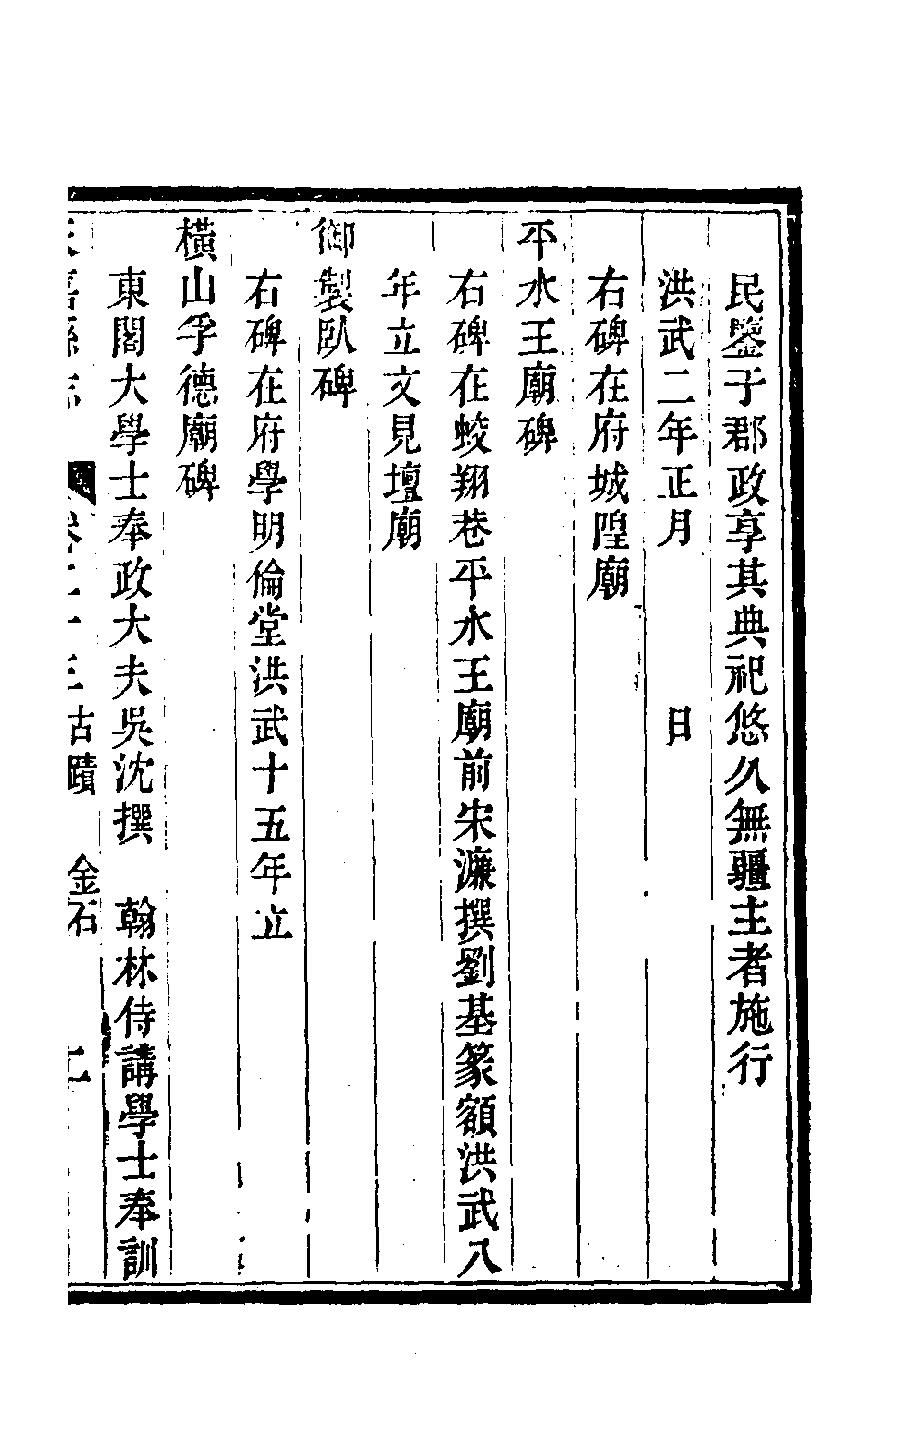 民鑒于郡政享其典祀悠久無疆主者施行
洪武二年正月　　　日
右碑在府城隍廟
平水王廟碑
右碑在蛟翔巷平水王廟前宋濂撰劉基篆額洪武八
年立文見壇廟
御製臥碑
右碑在府學明倫堂洪武十五年立
橫山孚德廟碑
東閣大學士奉政大夫吳沈撰　翰林侍講學士奉訓
嘉縣志　卷二十三古蹟　金石